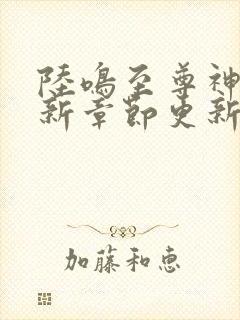 陸鳴至尊神
新章節更新
加藤和恵